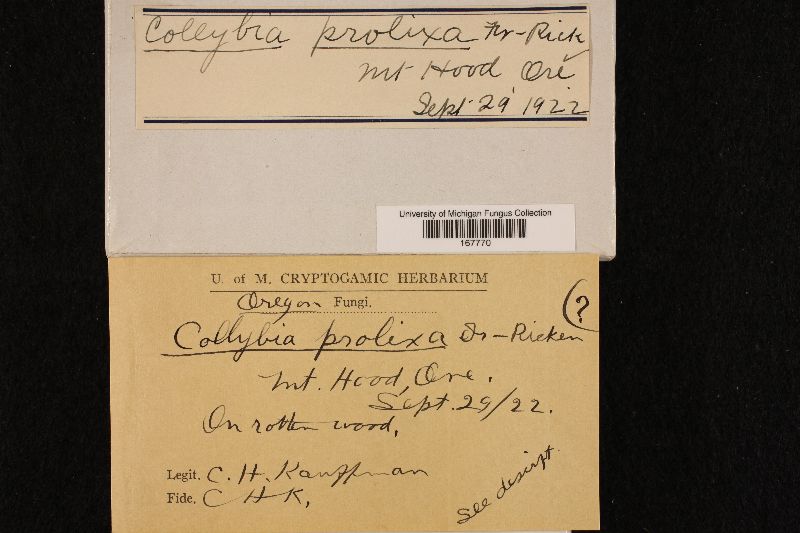 Collybia prolixa Fr-Rick
Mt Hood Ore
Sept 29 1922
University of Michigan Fungus Collection
167770
U. of M. CRYPTOGAMIC HERBARIUM
Oregon Fungi.
(?
Collybia prolixa Fr-Ricken
Mt. Hood, Ore.
Sept. 29/22.
On rotten wood.
Legit. C. H. Kauffman
Fide. C H K.
see descript.